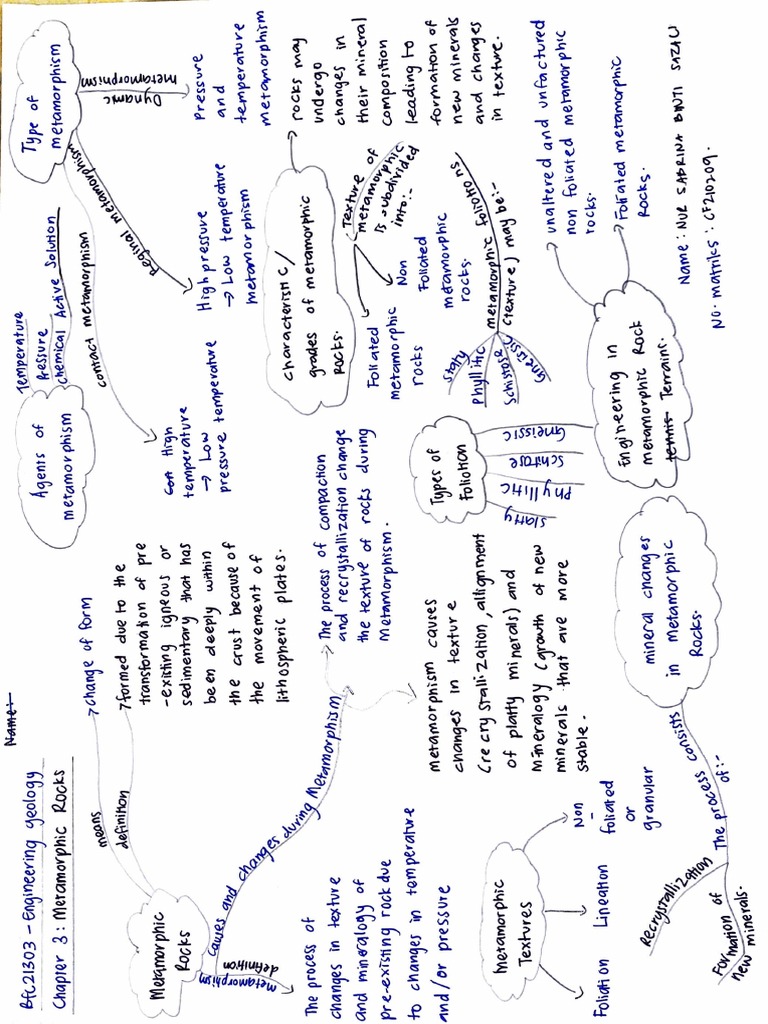 Name:
BFC21303 - Engineering geology
Chapter 3 : Metamorphic Rocks
Metamorphic
Rocks
means
change of form
definition
formed due to the
transformation of pre
-existing igneous or
sedimentary that has
been deeply within
the crust because of
the movement of
lithospheric plates.
causes and changes during Metamorphism
The process of compaction
and recrystallization change
the texture of rocks during
Metamorphism.
metamorphism causes
changes in texture
(recrystallization, allignment
of platty minerals) and
mineralogy (growth of new
minerals that are more
stable.
metamorphism
definition
The process of
changes in texture
and mineralogy of
pre-existing rock due
to changes in temperature
and/or pressure
Metamorphic
Textures
Foliation
Lineation
Non
-
foliated
or
granular
mineral changes
in Metamorphic
Rocks.
The process consists
of:-
Recrystallization
Formation of
new minerals.
Agents of
metamorphism
Temperature
Pressure
chemical Active Solution
Type of
metamorphism
Dynamic
metamorphism
Pressure
and
temperature
metamorphism
Reginal metamorphism
High pressure
→ Low temperature
metamorphism
contact metamorphism
Con High
temperature
→ Low
pressure temperature
characteristic/
grades of metamorphic
Rocks.
rocks may
undergo
changes in
their mineral
composition
leading to
formation of
new minerals
and changes
in texture.
Texture of
metamorphic
is subdivided
into:-
Foliated
metamorphic
rocks
Non
Foliated
metamorphic
rocks.
metamorphic foliations
(texture) may be:-
slaty
Phyllitic
Schistose
Gneissic
Types of
Foliation
slatty
Phyllitic
Schitose
Gneissic
Engineering in
metamorphic Rock
tennis Terraint.
unaltered and unfactured
non foliated metamorphic
rocks.
Foliated metamorphic
Rocks.
Name : NUR SABRINA BINTI SAZALI
No. matriks : CF210209.